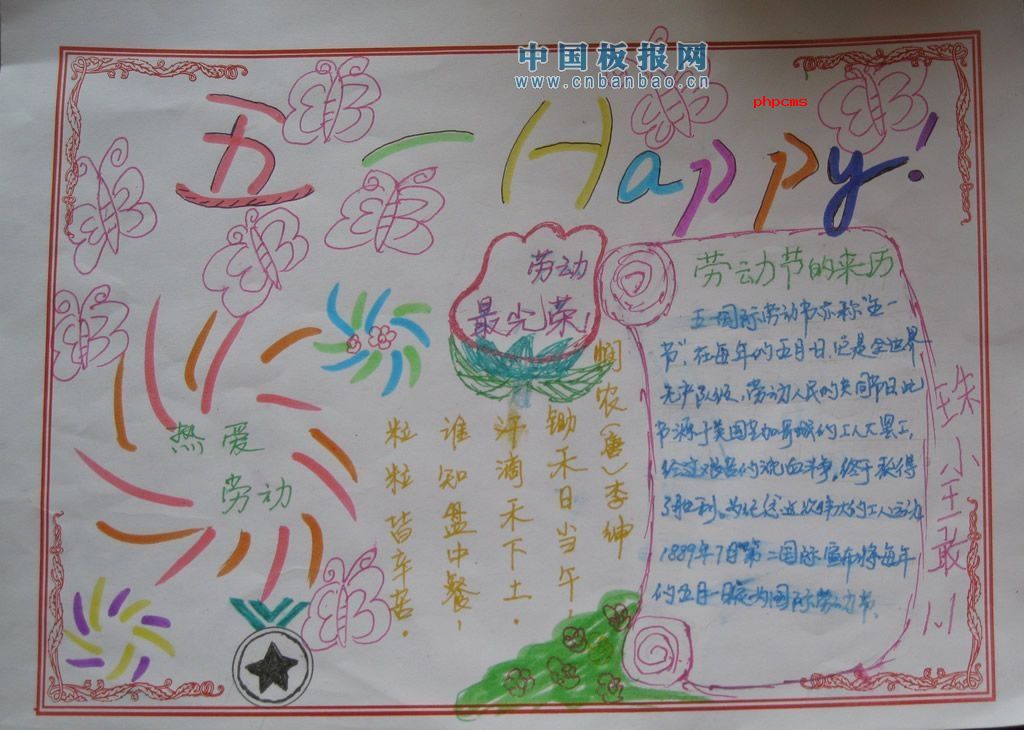 中国板报网
www.cnbanbao.cn
phpcms
五一Happy!
劳动
最光荣!
热爱
劳动
悯农(唐)李绅
锄禾日当午,
汗滴禾下土.
谁知盘中餐,
粒粒皆辛苦.
劳动节的来历
五一国际劳动节亦称"五一
节",在每年的五月一日.它是全世界
无产阶级、劳动人民的共同节日.此
节源于美国芝加哥城的工人大罢工,
经过艰苦的流血斗争,终于获得
了胜利.为纪念这次伟大的工人运动
1889年7月第二国际宣布将每年
的五月一日定为国际劳动节.
小 敢 1.1